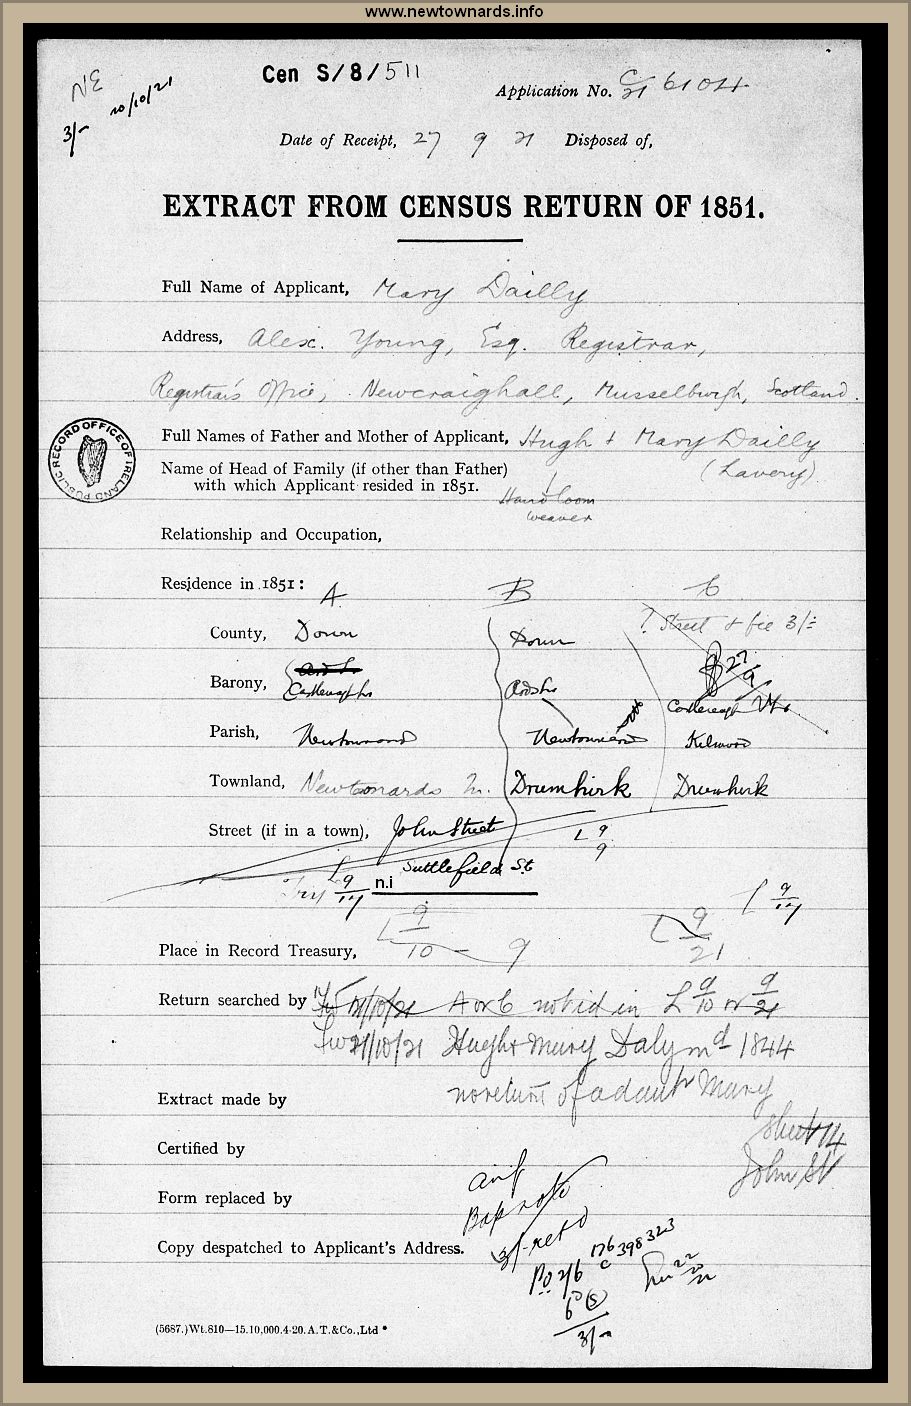 www.newtownards.info
NE
3/- 20/10/21
Cen S/8/511
Application No. C/21 6104
Date of Receipt, 27 9 21 Disposed of,
EXTRACT FROM CENSUS RETURN OF 1851.
Full Name of Applicant, Mary Dailly
Address, Alex. Young, Esq. Registrar,
Registrar's Office, Newcraighall, Musselburgh, Scotland.
PUBLIC RECORD OFFICE OF IRELAND
Full Names of Father and Mother of Applicant, Hugh + Mary Dailly
(Lavery)
Name of Head of Family (if other than Father)
with which Applicant resided in 1851.
Hand loom
weaver
Relationship and Occupation,
Residence in 1851:
A B C
? Street & fee 3/-
County, Down Down
27/9
Barony, Ards Lr
Castlereagh Lr Ards Lr Castlereagh
Parish, Newtownards Newtownards Kilmood
Townland, Newtonards Drumhirk Drumhirk
Street (if in a town), John Street
L 9 9
Suttlefield St
Try L 9/14 n.i
L 9/14
L 9/10 9 L 9/21
Place in Record Treasury,
Return searched by A or C not id in L 9/10 or 9/21
21/10/21 Hugh & Mary Daly md 1844
no return of a daur Mary
Extract made by
Sheet 14
John St
Certified by
Form replaced by
3/- retd
Copy despatched to Applicant's Address.
PO 2/6 176 C 398323
6D (S)
3/-
(5687.)Wt.810—15.10,000.4-20.A.T.&Co.,Ltd